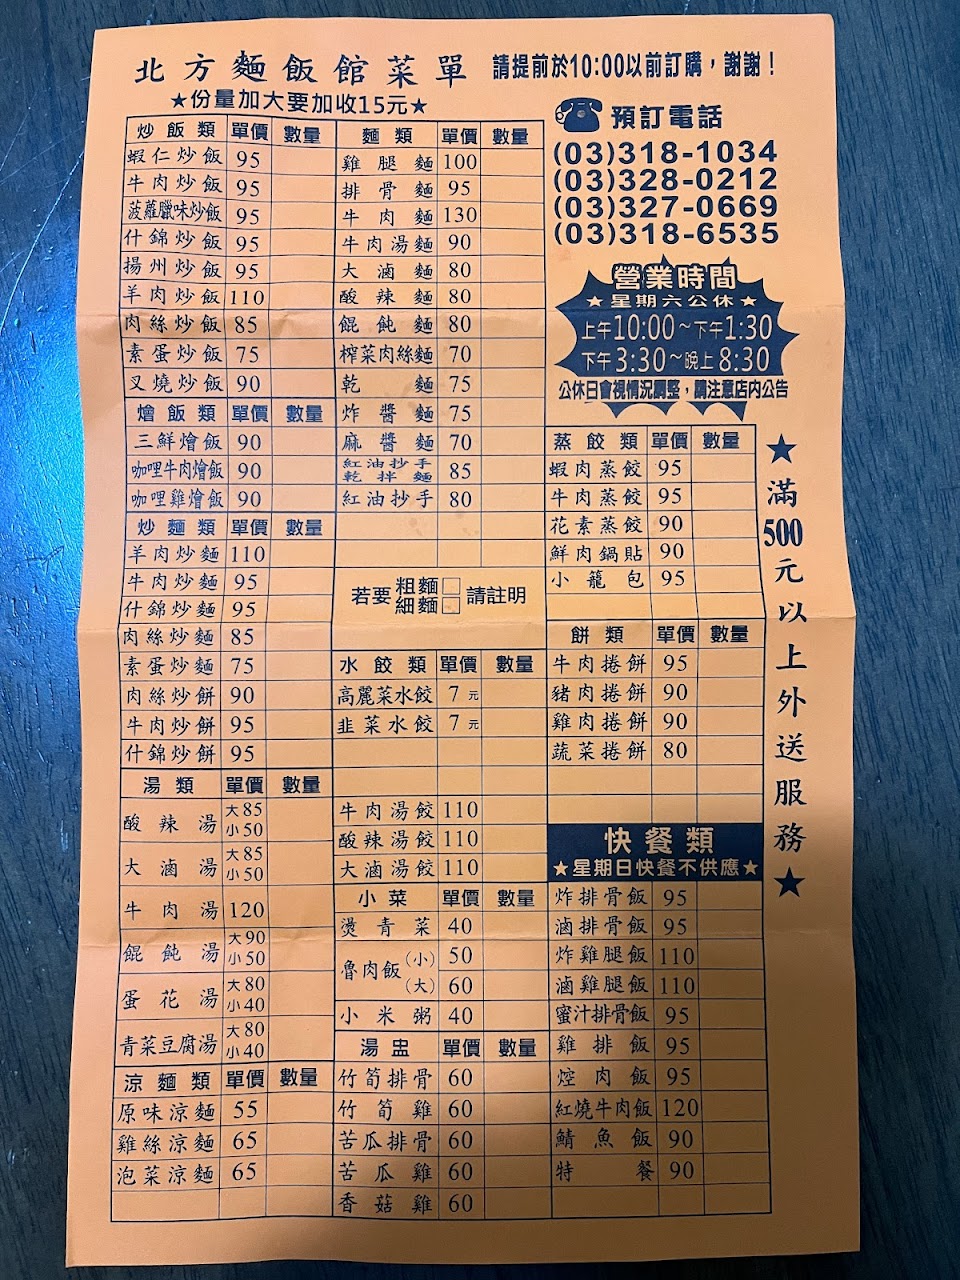 北方麵飯館菜單
請提前於10:00以前訂購，謝謝！
★份量加大要加收15元★
炒飯類 單價 數量
蝦仁炒飯 95
牛肉炒飯 95
菠蘿臘味炒飯 95
什錦炒飯 95
揚州炒飯 95
羊肉炒飯 110
肉絲炒飯 85
素蛋炒飯 75
叉燒炒飯 90
燴飯類 單價 數量
三鮮燴飯 90
咖哩牛肉燴飯 90
咖哩雞燴飯 90
炒麵類 單價 數量
羊肉炒麵 110
牛肉炒麵 95
什錦炒麵 95
肉絲炒麵 85
素蛋炒麵 75
肉絲炒餅 90
牛肉炒餅 95
什錦炒餅 95
湯類 單價 數量
酸辣湯 大85 小50
大滷湯 大85 小50
牛肉湯 120
餛飩湯 大90 小50
蛋花湯 大80 小40
青菜豆腐湯 大80 小40
涼麵類 單價 數量
原味涼麵 55
雞絲涼麵 65
泡菜涼麵 65
麵類 單價 數量
雞腿麵 100
排骨麵 95
牛肉麵 130
牛肉湯麵 90
大滷麵 80
酸辣麵 80
餛飩麵 80
榨菜肉絲麵 70
乾麵 75
炸醬麵 75
麻醬麵 70
紅油抄手乾拌麵 85
紅油抄手 80
若要 粗麵□ 細麵□ 請註明
水餃類 單價 數量
高麗菜水餃 7元
韭菜水餃 7元
牛肉湯餃 110
酸辣湯餃 110
大滷湯餃 110
小菜 單價 數量
燙青菜 40
魯肉飯 (小) 50
(大) 60
小米粥 40
湯盅 單價 數量
竹筍排骨 60
竹筍雞 60
苦瓜排骨 60
苦瓜雞 60
香菇雞 60
預訂電話
(03)318-1034
(03)328-0212
(03)327-0669
(03)318-6535
營業時間
★星期六公休★
上午10:00~下午1:30
下午3:30~晚上8:30
公休日會視情況調整，請注意店內公告
蒸餃類 單價 數量
蝦肉蒸餃 95
牛肉蒸餃 95
花素蒸餃 90
鮮肉鍋貼 90
小籠包 95
餅類 單價 數量
牛肉捲餅 95
豬肉捲餅 90
雞肉捲餅 90
蔬菜捲餅 80
快餐類
★星期日快餐不供應★
炸排骨飯 95
滷排骨飯 95
炸雞腿飯 110
滷雞腿飯 110
蜜汁排骨飯 95
雞排飯 95
焢肉飯 95
紅燒牛肉飯 120
鯖魚飯 90
特餐 90
★滿500元以上外送服務★